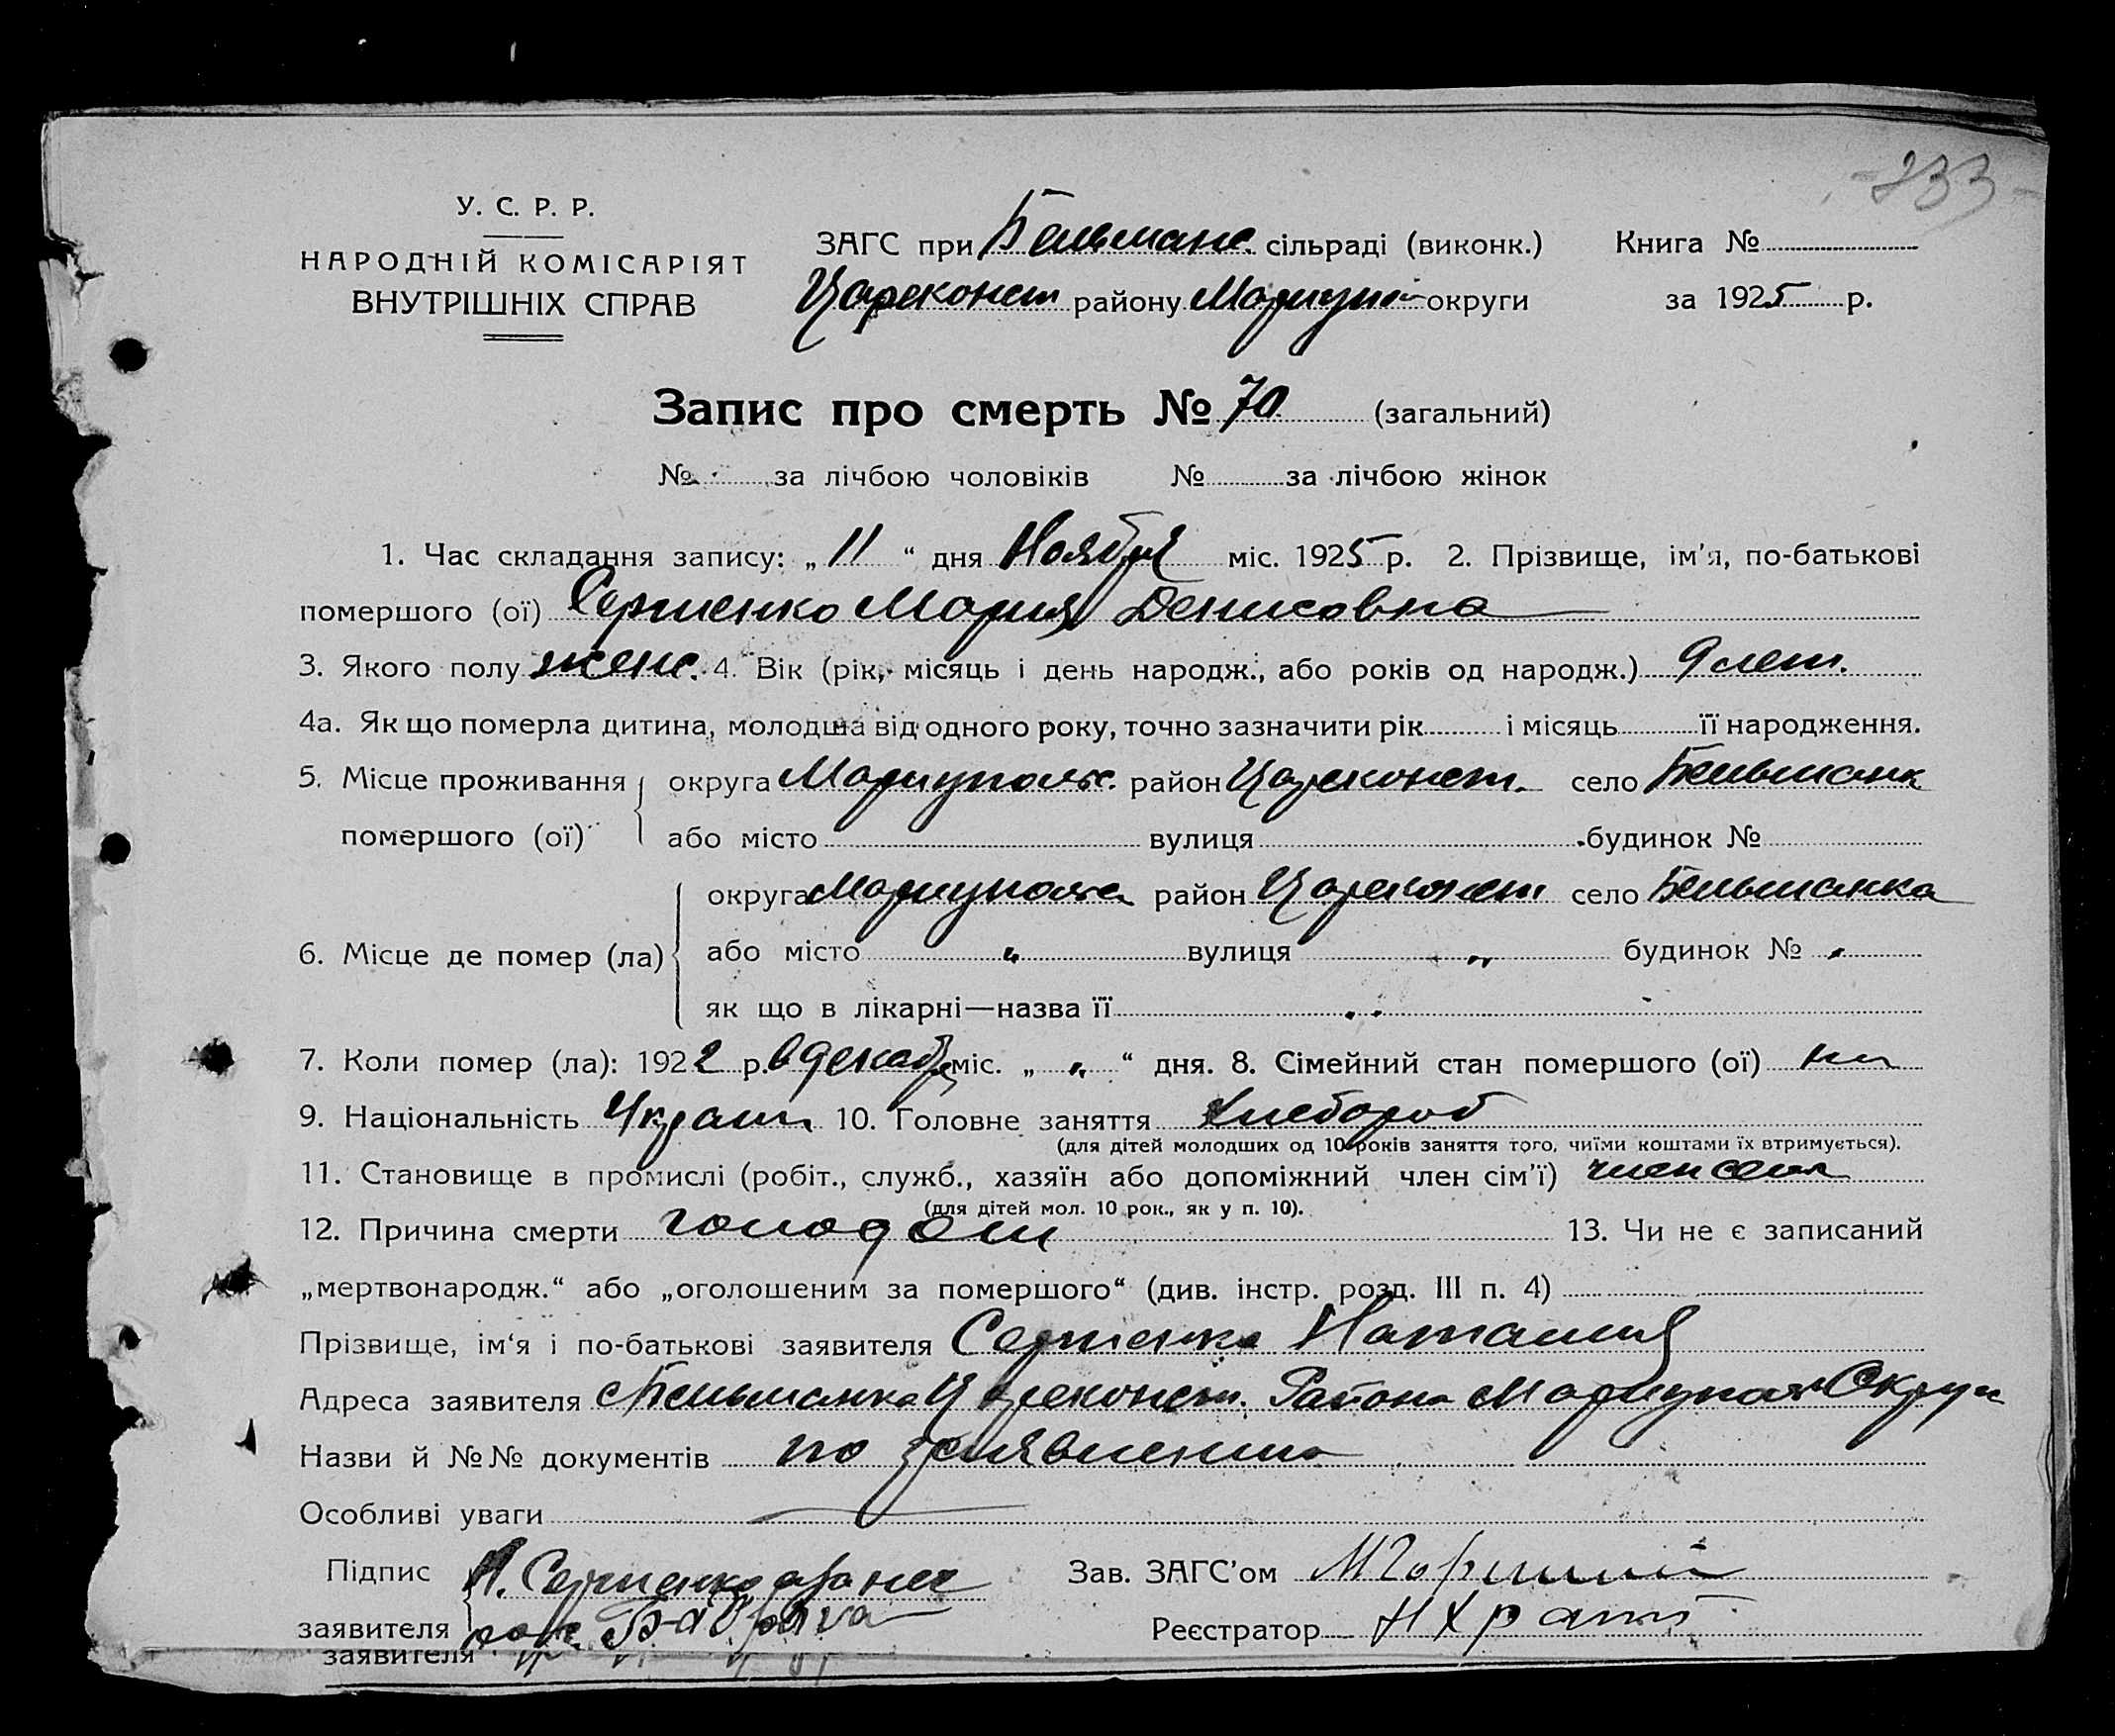 -233-
У. С. Р. Р.
НАРОДНІЙ КОМІСАРІЯТ
ВНУТРІШНІХ СПРАВ
ЗАГС при Бельманс. сільраді (виконк.)
Цареконст району Мариуп округи
Книга №
за 1925 р.
Запис про смерть № 70 (загальний)
№ за лічбою чоловіків № за лічбою жінок
1. Час складання запису: „ 11 “ дня Ноября міс. 1925 р. 2. Прізвище, ім'я, по-батькові
помершого (ої) Сергиенко Мария Денисовна
3. Якого полу женс. 4. Вік (рік, місяць і день народж., або років од народж.) 9 лет.
4а. Як що померла дитина, молодша від одного року, точно зазначити рік і місяць її народження.
5. Місце проживання округа Мариупольс. район Цареконст. село Бельманк
помершого (ої) або місто вулиця будинок №
округа район Цареконст село Бельманка
6. Місце де помер (ла) або місто „ вулиця „ будинок № „
як що в лікарні—назва її „
7. Коли помер (ла): 1922 р. в декабре міс. „ „ “ дня. 8. Сімейний стан помершого (ої)
9. Національність Украин 10. Головне заняття Хлебороб
(для дітей молодших од 10 років заняття того, чиїми коштами їх втримується).
11. Становище в промислі (робіт., служб., хазяїн або допоміжний член сім'ї) член сем
(для дітей мол. 10 рок., як у п. 10).
12. Причина смерти голодом 13. Чи не є записаний
„мертвонародж.“ або „оголошеним за помершого“ (див. інстр. розд. III п. 4)
Прізвище, ім'я і по-батькові заявителя Сергиенко Наталия
Адреса заявителя с Бельманка Цареконст. Района Мариупол Округи
Назви й №№ документів по заявлению
Особливі уваги
Підпис Н. Сергиенко а за нее
заявителя
Зав. ЗАГС'ом
Реєстратор
заявителя